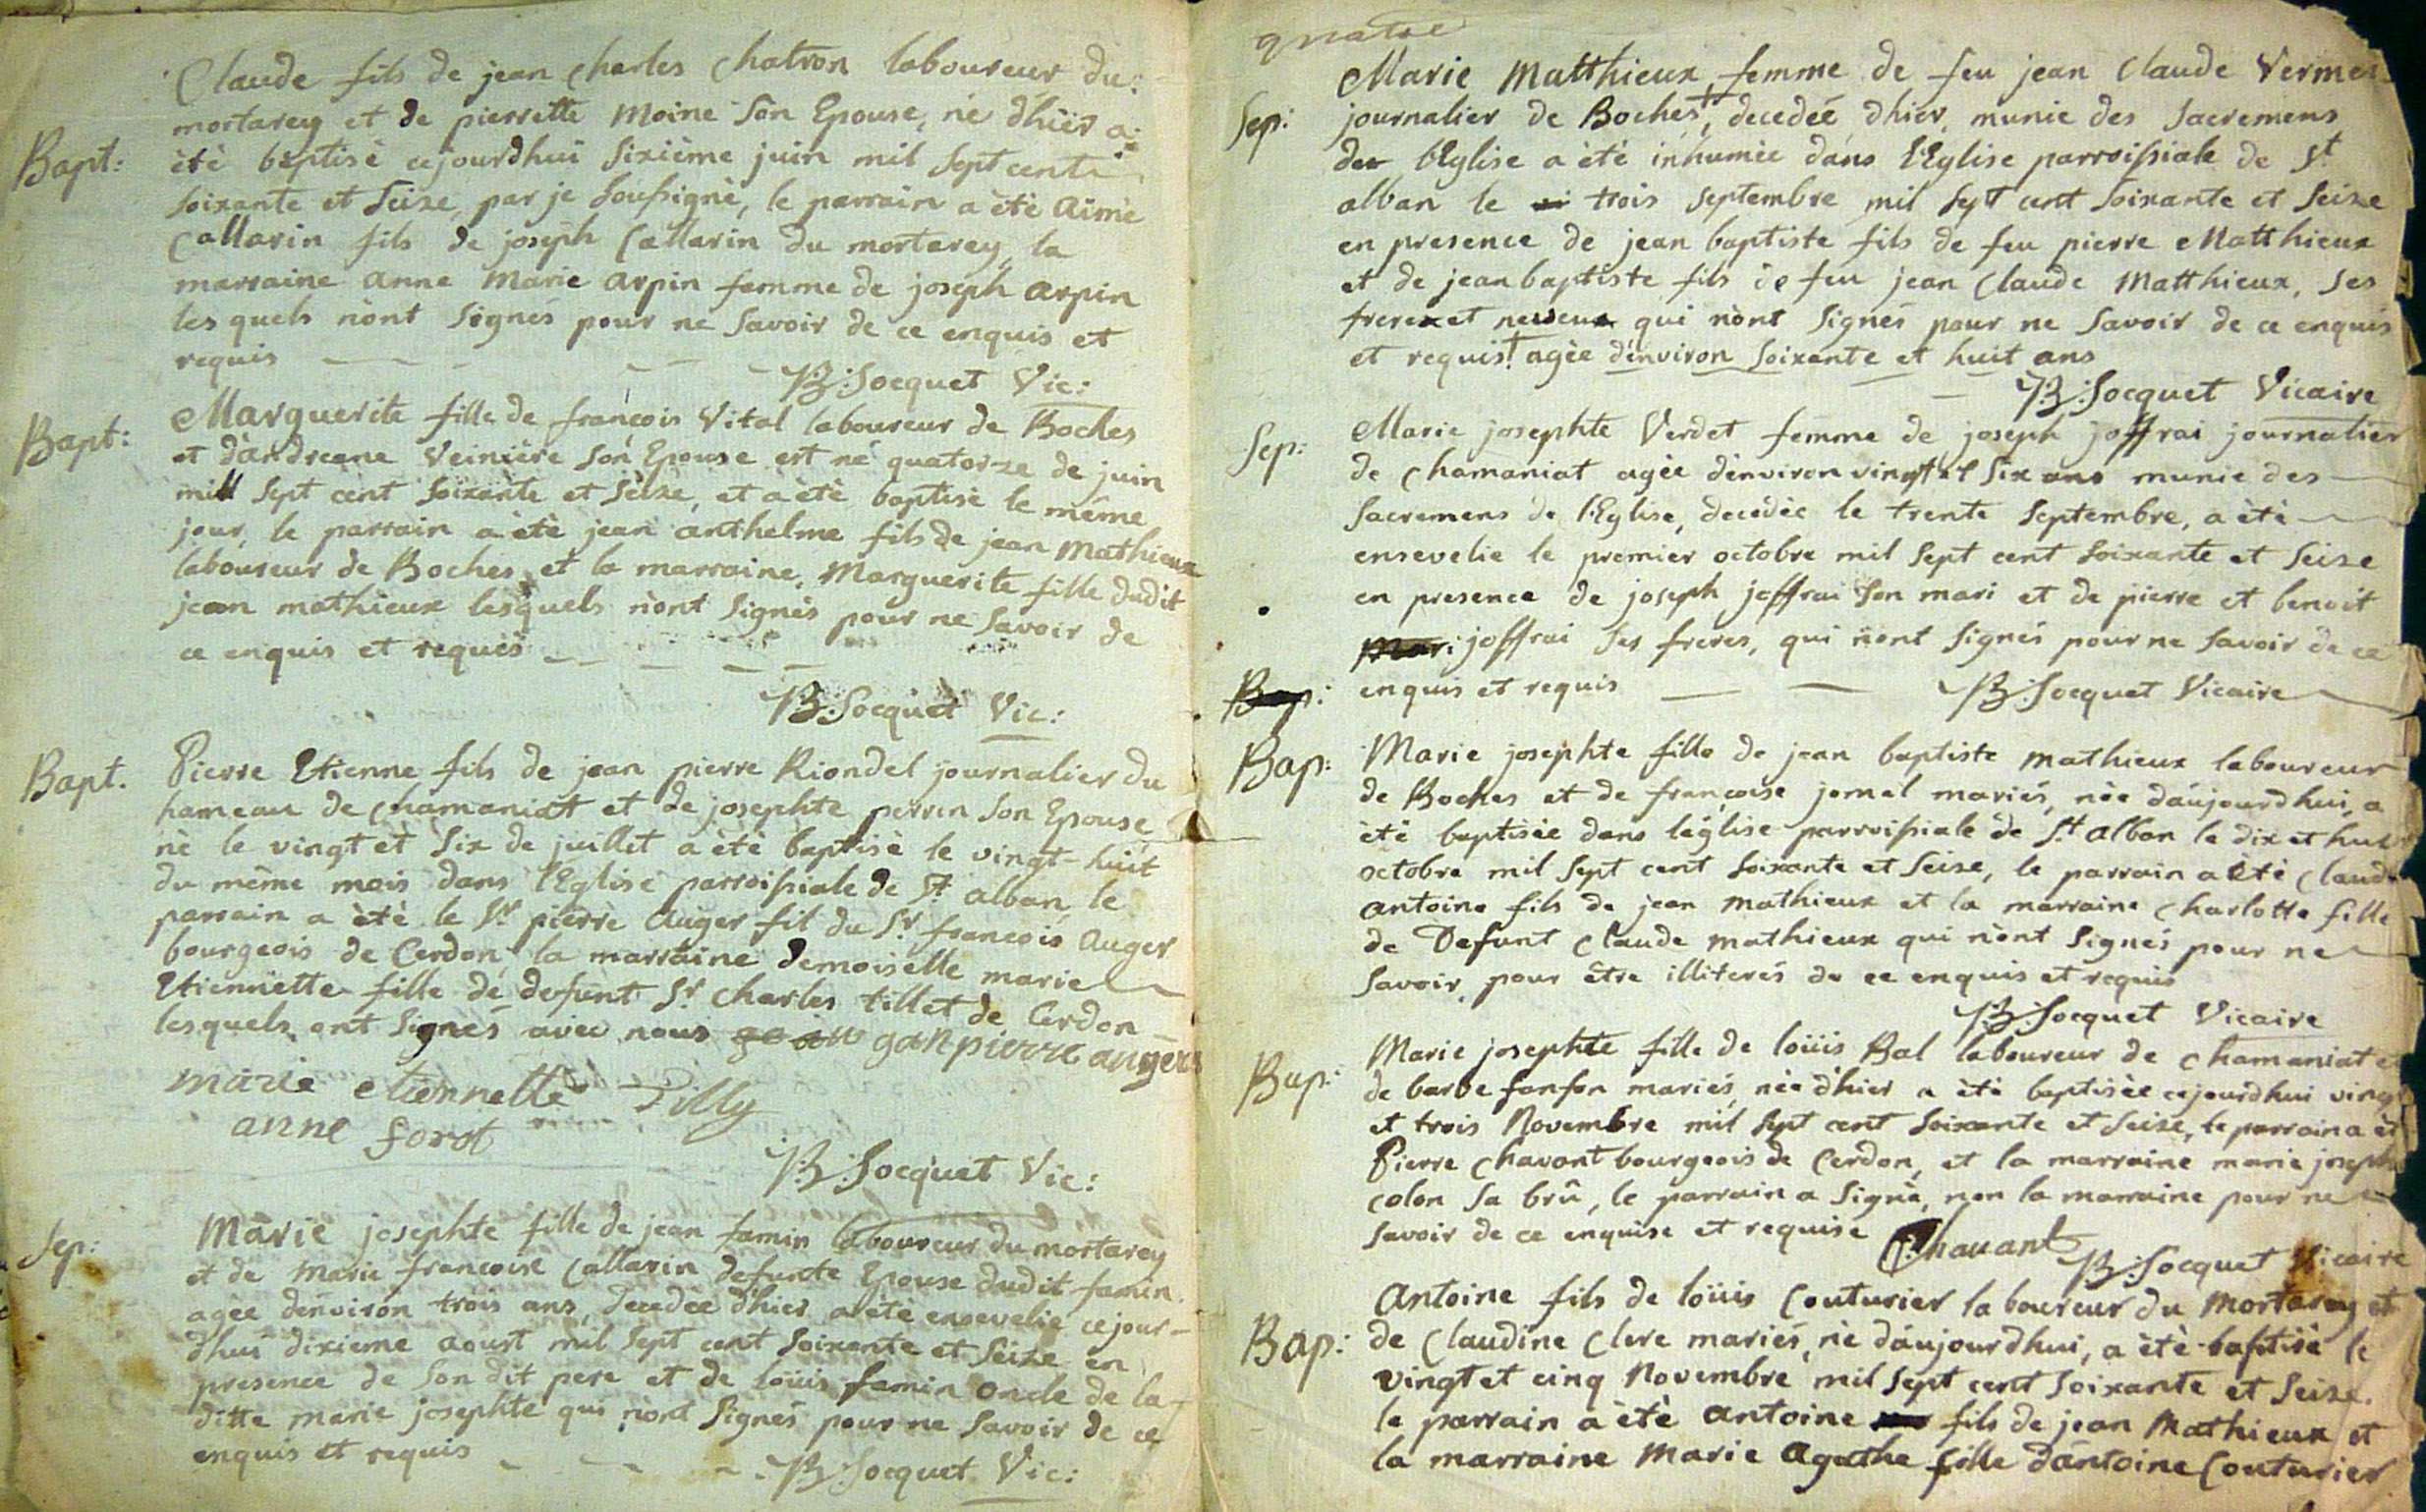 Claude fils de jean Charles Chatron laboureur du
mortarey et de pierrette Moine Son Epouse, né d'hier a
Bapt: été bâptisé cejourdhui Sixième juin mil Sept cent
Soixante et Seize, par je Soussigné, le parrain a été Aimé
Callarin fils de joseph Callarin du mortarey, la
marraine Anne Marie Arpin femme de joseph Arpin
les quels n'ont Signés pour ne Savoir de ce enquis et
requis
B: Socquet Vic:
Bapt: Marguerite fille de françois Vital laboureur de Boches
et d'andreane Veiniere Son Epouse est né quatorze de juin
mil Sept cent Soixante et Seize, et a été baptisé le même
jour, le parrain a été jean anthelme fils de jean Mathieux
laboureur de Boches, et la marraine, Marguerite fille dudit
jean mathieux lesquels n'ont Signés pour ne Savoir de
ce enquis et requis
B: Socquet Vic:
Bapt. Pierre Etienne fils de jean pierre Riondel journalier du
hameau de Chamaniat et de josephte perrin Son Epouse
né le vingt et Six de juillet a été bâptisé le vingt-huit
du même mois dans l'Eglise parroissiale de St. alban, le
parrain a été le Sr pierre Auger fil du Sr françois Auger
bourgeois de Cerdon, la marraine demoiselle marie
Etiennette fille de defunt Sr Charles tillet de Cerdon
lesquels ont Signés avec nous ganpierre angers
marie etiennette Tilly
anne forot
B: Socquet Vic:
Sep: Marie josephte fille de jean famin laboureur du mortarey
et de Marie francoise Callarin defunte Epouse dudit famin
agée d'environ trois ans, decedée d'hier a été ensevelie cejour-
dhui dixieme aoust mil Sept cent Soixante et Seize en
presence de Son dit pere et de loüis famin oncle de la
ditte marie josephte qui n'ont Signés pour ne Savoir de ce
enquis et requis
B: Socquet Vic:
quatre
Marie Matthieux femme de feu jean Claude Vermet
Sep: journalier de Boches†, decedée d'hier, munie des Sacremens
de l'Eglise a été inhumée dans l'Eglise parroissiale de St
alban le trois Septembre mil Sept cent Soixante et Seize
en presence de jean baptiste fils de feu pierre Matthieux
et de jean baptiste fils de feu jean Claude Matthieux, Ses
frere et neveu qui n'ont Signés pour ne Savoir de ce enquis
et requis † agée d'environ Soixante et huit ans
B: Socquet Vicaire
Sep: Marie josephte Verdet femme de joseph joffrai journalier
de Chamaniat agée d'environ vingt et Six ans munie des
Sacremens de l'Eglise, decedée le trente Septembre, a été
ensevelie le premier octobre mil Sept cent Soixante et Seize
en presence de joseph joffrai Son mari et de pierre et benoit
joffrai Ses freres, qui n'ont Signés pour ne Savoir de ce
Bap: enquis et requis B: Socquet Vicaire
Bap: Marie josephte fille de jean baptiste Mathieux laboureur
de Boches et de françoise jomel mariés, née d'aujourdhui, a
été baptisée dans l'église parroissiale de St alban le dix et huit
octobre mil Sept cent Soixante et Seize, le parrain a été Claude
Antoine fils de jean Mathieux et la marraine Charlotte fille
de Defunt Claude Mathieux qui n'ont Signés pour ne
Savoir, pour être illiterés de ce enquis et requis
B: Socquet Vicaire
Bap: Marie josephte fille de loüis Bal laboureur de Chamaniat et
de barbe fanfon mariés, née d'hier a été baptisée cejourdhui vingt
et trois Novembre mil Sept cent Soixante et Seize, le parrain a été
Pierre Chavant bourgeois de Cerdon, et la marraine marie joseph
colon Sa brû, le parrain a Signé, non la marraine pour ne
Savoir de ce enquise et requise PChavant B: Socquet Vicaire
Antoine fils de loüis Couturier laboureur du Mortarey et
Bap: de Claudine Clere mariés, né d'aujourdhui, a été baptisé le
vingt et cinq Novembre mil Sept cent Soixante et Seize.
le parrain a été Antoine fils de jean Mathieux et
la marraine Marie Agathe fille d'antoine Couturier